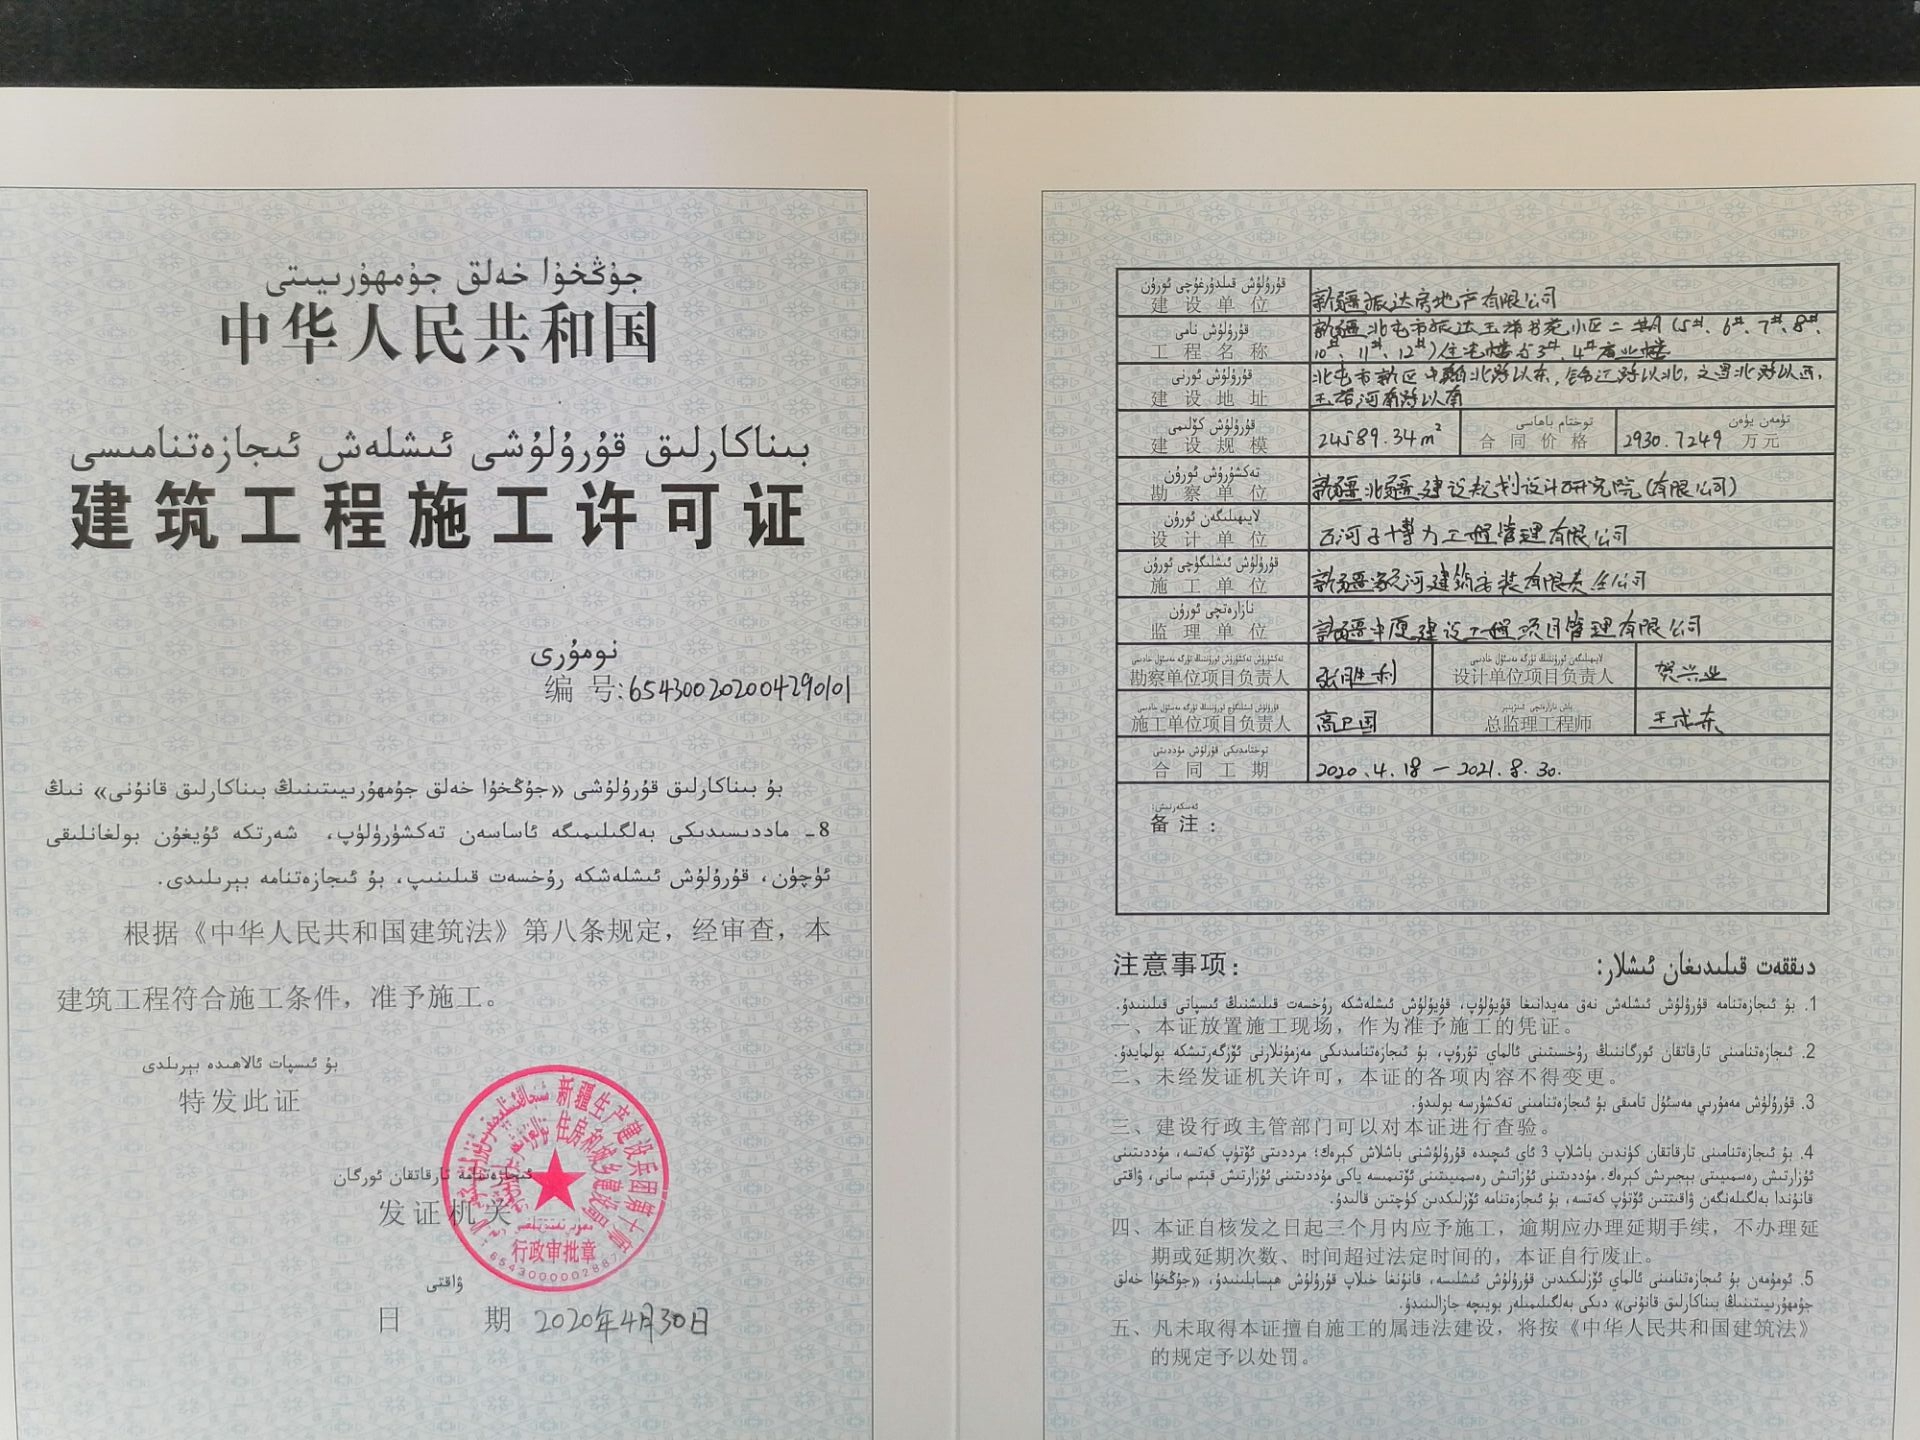 جۇڭخۇا خەلق جۇمھۇرىيىتى
中华人民共和国
بىناكارلىق قۇرۇلۇشى ئىشلەش ئىجازەتنامىسى
建筑工程施工许可证
نومۇرى
编 号:654300202004290101
بۇ بىناكارلىق قۇرۇلۇشى «جۇڭخۇا خەلق جۇمھۇرىيىتىنىڭ بىناكارلىق قانۇنى» نىڭ
8ـ ماددىسىدىكى بەلگىلىمىگە ئاساسەن تەكشۈرۈلۈپ، شەرتكە ئۇيغۇن بولغانلىقى
ئۈچۈن، قۇرۇلۇش ئىشلەشكە رۇخسەت قىلىنىپ، بۇ ئىجازەتنامە بېرىلدى.
根据《中华人民共和国建筑法》第八条规定，经审查，本
建筑工程符合施工条件，准予施工。
بۇ ئىسپات ئالاھىدە بېرىلدى
特发此证
ئىجازەتنامە تارقاتقان ئورگان
发证机关
新疆生产建设兵团第十师
住房和城乡建设局
行政审批章
ۋاقتى
日 期 2020年4月30日
قۇرۇلۇش قىلدۇرغۇچى ئورۇن
建设单位 新疆振达房地产有限公司
قۇرۇلۇش نامى
工程名称 新疆北屯市振达玉瑞书苑小区二期(5#、6#、7#、8#、
10#、11#、12#)住宅楼与3#、4#商业楼
قۇرۇلۇش ئورنى
建设地址 北屯市新区 北路以东, 路以北, 北路以西,
河南路以南
قۇرۇلۇش كۆلىمى
建设规模 24589.34m²
توختام باھاسى
合同价格 2930.7249 万元
تۈمەن يۈەن
تەكشۈرۈش ئورۇن
勘察单位 新疆北疆建设规划设计研究院(有限公司)
لايىھىلىگەن ئورۇن
设计单位 石河子博力工程管理有限公司
قۇرۇلۇش ئىشلىگۈچى ئورۇن
施工单位 新疆 河建筑安装有限责任公司
نازارەتچى ئورۇن
监理单位 新疆中厦建设工程项目管理有限公司
勘察单位项目负责人 张胜利
设计单位项目负责人 贺兴业
施工单位项目负责人 高卫国
总监理工程师 王成东
توختامدىكى قۇرلۇش مۇددىتى
合同工期 2020.4.18 — 2021.8.30.
ئەسكەرتىش:
备注：
注意事项： دىققەت قىلىدىغان ئىشلار:
1. بۇ ئىجازەتنامە قۇرۇلۇش ئىشلەش نەق مەيدانىغا قويۇلۇپ، قۇيۇلۇش ئىشلەشكە رۇخسەت قىلىشنىڭ ئىسپاتى قىلىنىدۇ.
一、本证放置施工现场，作为准予施工的凭证。
2. ئىجازەتنامىنى تارقاتقان ئورگاننىڭ رۇخسىتىنى ئالماي تۇرۇپ، بۇ ئىجازەتنامىدىكى مەزمۇنلارنى ئۆزگەرتىشكە بولمايدۇ.
二、未经发证机关许可，本证的各项内容不得变更。
3. قۇرۇلۇش مەمۇرىي مەسئۇل تامىقى بۇ ئىجازەتنامىنى تەكشۈرسە بولىدۇ.
三、建设行政主管部门可以对本证进行查验。
4. بۇ ئىجازەتنامىنى تارقاتقان كۈندىن باشلاپ 3 ئاي ئىچىدە قۇرۇلۇشنى باشلاش كېرەك؛ مۇددىتى ئۆتۈپ كەتسە، مۇددىتىنى
ئۇزارتىش رەسمىيىتى بېجىرىش كېرەك. مۇددىتىنى ئۇزاتىش رەسمىيىتىنى ئۆتىمىسە ياكى مۇددىتىنى ئۇزارتىش قېتىم سانى، ۋاقتى
قانۇندا بەلگىلەنگەن ۋاقىتتىن ئۆتۈپ كەتسە، بۇ ئىجازەتنامە ئۆزلىكىدىن كۈچتىن قالىدۇ.
四、本证自核发之日起三个月内应予施工，逾期应办理延期手续，不办理延
期或延期次数、时间超过法定时间的，本证自行废止。
5. ئومۇمەن بۇ ئىجازەتنامىنى ئالماي ئۆزلىكىدىن قۇرۇلۇش ئىشلىسە، قانۇنغا خىلاپ قۇرۇلۇش ھېسابلىنىدۇ، «جۇڭخۇا خەلق
جۇمھۇرىيىتىنىڭ بىناكارلىق قانۇنى» دىكى بەلگىلىمىلەر بويىچە جازالىنىدۇ.
五、凡未取得本证擅自施工的属违法建设，将按《中华人民共和国建筑法》
的规定予以处罚。